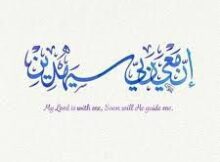 إن معي ربي سيهدين
My Lord is with me, Soon will He guide me.